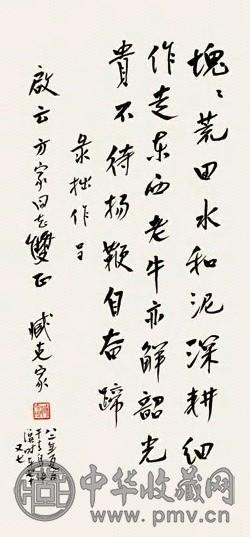 塊〻荒田水和泥深耕细
作走东西老牛亦解韶光
貴不待扬鞭自奋蹄
录拙作呈
啟云方家同志雙正 臧克家
又七
中华收藏网
www.pmv.cn